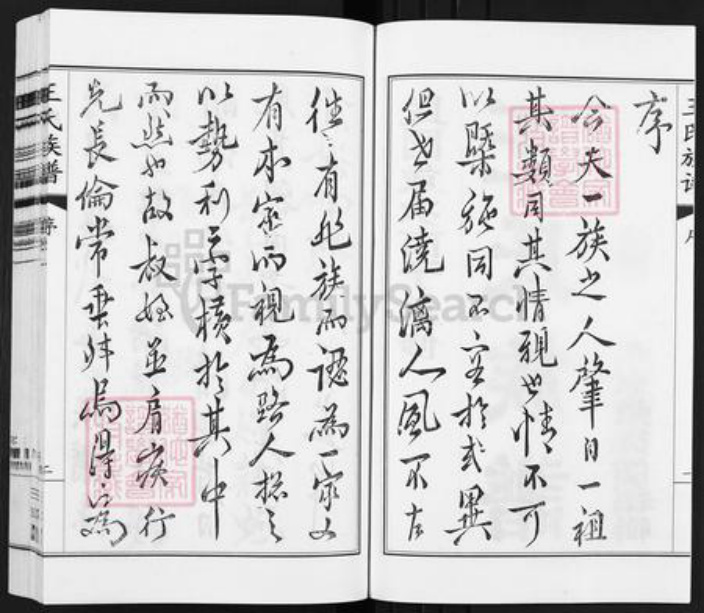 序
今夫一族之人肇自一祖
其類同其情親也情不可
以槩施同不容於或異
但世届澆漓人風不古
往々有非族而認為一家又
有本家而視為路人揔之
以勢利二字横於其中
而然也故叔姪並肩疾行
先長倫常乖舛烏得為
王氏族譜
序
王氏族譜
FamilySearch